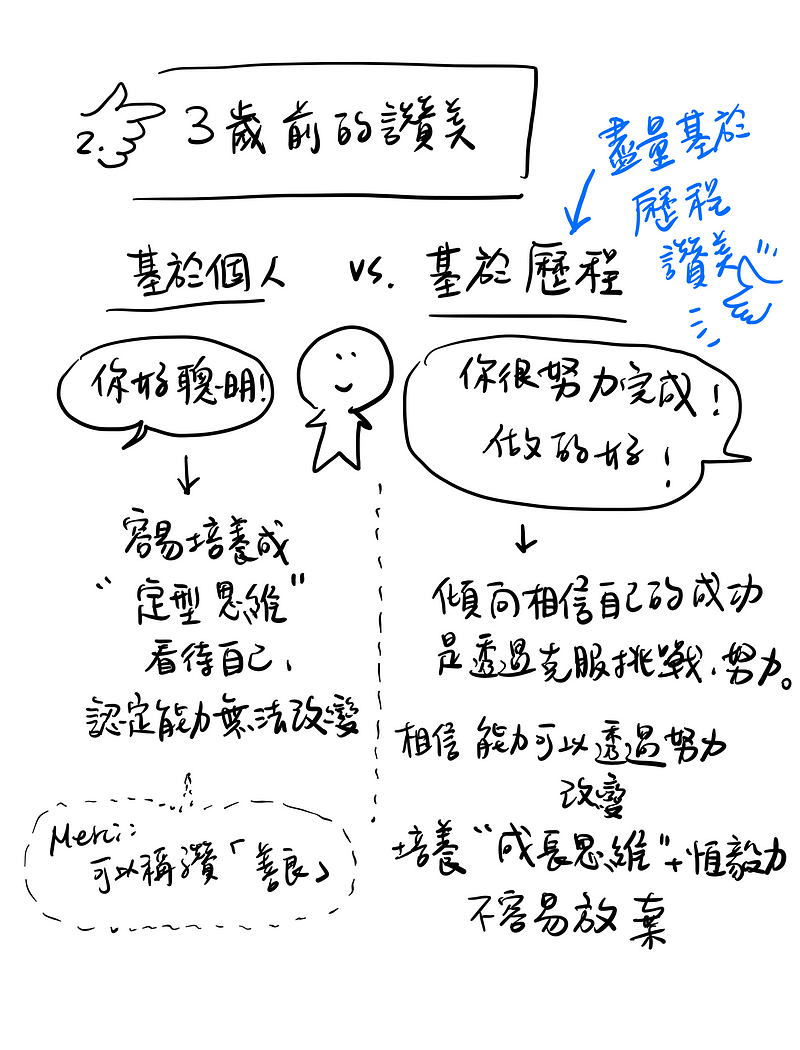 2. 3歲前的讚美
盡量基於
歷程
讚美
基於個人 vs. 基於歷程
你好聰明!
你很努力完成!
做的好!
容易培養成
"定型思維"
看待自己、
認定能力無法改變
Merci:
可以稱讚「善良」
傾向相信自己的成功
是透過克服挑戰、努力。
相信能力可以透過努力
改變
培養"成長思維"+恆毅力
不容易放棄